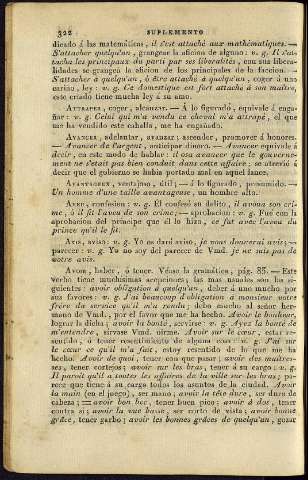 322 SUPLEMENTO
dicado á las matemáticas, il s'est attaché aux mathématiques. —
S'attacher quelqu'un, grangear la aficion de alguno: v. g. Il s'at-
tacha les principaux du parti par ses liberalités, con sus libera-
lidades se grangea la aficion de los principales de la faccion. —
S'attacher à quelqu'un, ó être attaché à quelqu'un, coger á uno
cariño, ley: v. g. Ce domestique est fort attaché à son maître,
este criado tiene mucha ley á su amo.
ATTRAPER, coger, alcanzar. — Á lo figurado, equivale á enga-
ñar: v. g. Celui qui m'a vendu ce cheval m'a attrapé, el que
me ha vendido este caballo, me ha engañado.
AVANCER, adelantar, avanzar; ascender, promover á honores.
— Avancer de l'argent, anticipar dinero. — Avancer equivale á
decir, en este modo de hablar: il osa avancer que le gouverne-
ment ne s'etait pas bien conduit dans cette affaire; se atrevió á
decir que el gobierno se habia portado mal en aquel lance.
AVANTAGEUX, ventajoso, útil; — á lo figurado, presumido.
Un homme d'une taille avantageuse, un hombre alto.
AVEU, confesion; v. g. Él confesó su delito, il avoua son cri-
me, ó il fit l'aveu de son crime; — aprobacion: v. g. Fué con la
aprobacion del príncipe que él lo hizo, ce fut avec l'aveu du
prince qu'il le fit.
AVIS, aviso: v. g. Yo os daré aviso, je vous donnerai avis; —
parecer: v. g. Yo no soy del parecer de Vmd. je ne suis pas de
votre avis.
AVOIR, haber, ó tener. Véase la gramática, pág. 85. — Este
verbo tiene muchísimas acepciones; las mas usuales son las si-
guientes: avoir obligation à quelqu'un, deber á uno mucho por
sus favores: v. g. J'ai beaucoup d'obligation à monsieur votre
frère du service qu'il m'a rendu; debo mucho al señor her-
mano de Vmd., por el favor que me ha hecho. Avoir le bonheur,
lograr la dicha; avoir la bonté, servirse: v. g. Ayez la bonté de
m'entendre, sírvase Vmd. oirme. Avoir sur le cœur, estar re-
sentido, ó tener resentimiento de alguna cosa: v. g. J'ai sur
le cœur ce qu'il m'a fait, estoy resentido de lo que me ha
hecho. Avoir de quoi, tener con que pasar; avoir des maîtres-
ses, tener cortejos; avoir sur les bras, tener á su cargo: v. g.
Il paroît qu'il a toutes les affaires de la ville sur les bras; pa-
rece que tiene á su cargo todos los asuntos de la ciudad. Avoir
la main (en el juego), ser mano; avoir la tête dure, ser duro de
cabeza; — avoir bon bec, tener buen pico; avoir à dos, tener
contra sí; avoir la vue basse, ser corto de vista; avoir bonne
grâce, tener garbo; avoir les bonnes grâces de quelqu'un, gozar